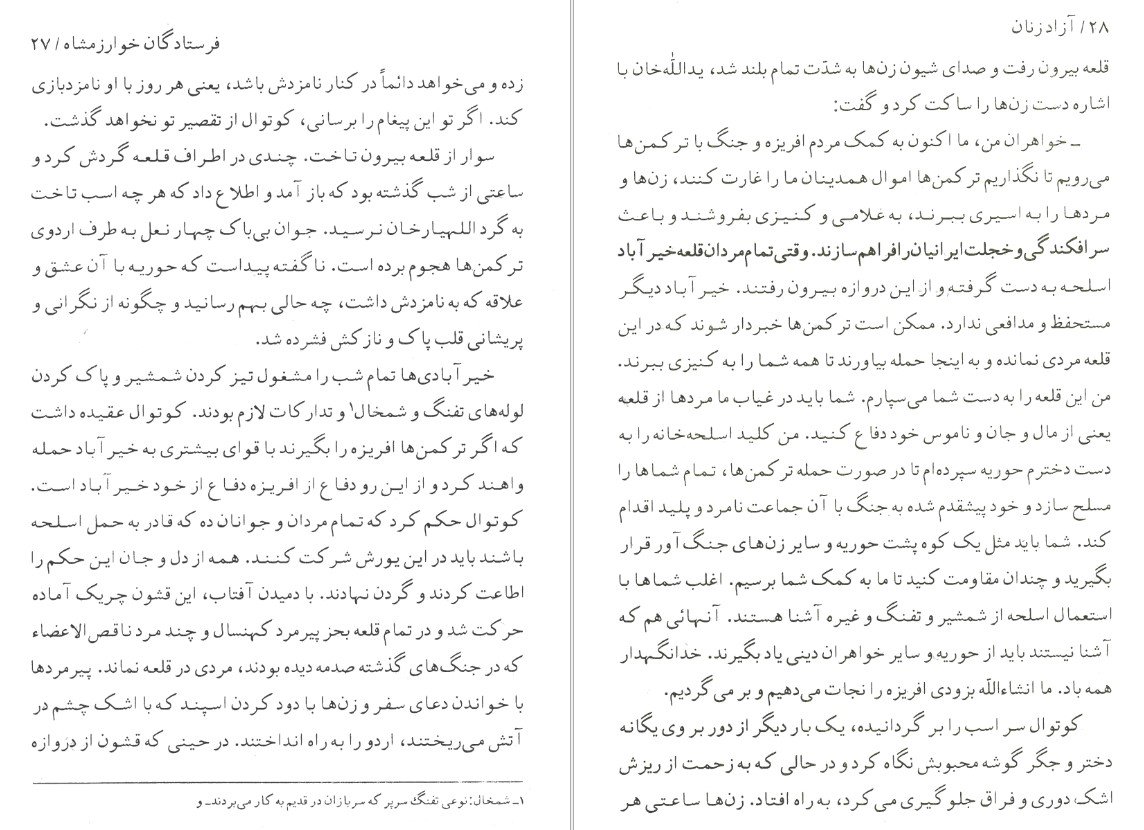 فرستادگان خوارزمشاه / ۲۷
زده و می‌خواهد دائماً در کنار نامزدش باشد، یعنی هر روز با او نامزدبازی
کند. اگر تو این پیغام را برسانی، کوتوال از تقصیر تو نخواهد گذشت.
سوار از قلعه بیرون تاخت. چندی در اطراف قلعه گردش کرد و
ساعتی از شب گذشته بود که باز آمد و اطلاع داد که هر چه اسب تاخت
به گرد اللهیارخان نرسید. جوان بی‌باک چهار نعل به طرف اردوی
ترکمن‌ها هجوم برده است. ناگفته پیداست که حوریه با آن عشق و
علاقه که به نامزدش داشت، چه حالی بهم رسانید و چگونه از نگرانی و
پریشانی قلب پاک و نازکش فشرده شد.
خیرآبادی‌ها تمام شب را مشغول تیز کردن شمشیر و پاک کردن
لوله‌های تفنگ و شمخال۱ و تدارکات لازم بودند. کوتوال عقیده داشت
که اگر ترکمن‌ها افریزه را بگیرند با قوای بیشتری به خیرآباد حمله
واهند کرد و از این رو دفاع از افریزه دفاع از خود خیرآباد است.
کوتوال حکم کرد که تمام مردان و جوانان ده که قادر به حمل اسلحه
باشند باید در این یورش شرکت کنند. همه از دل و جان این حکم را
اطاعت کردند و گردن نهادند. با دمیدن آفتاب، این قشون چریک آماده
حرکت شد و در تمام قلعه بجز پیرمرد کهنسال و چند مرد ناقص‌الاعضاء
که در جنگ‌های گذشته صدمه دیده بودند، مردی در قلعه نماند. پیرمردها
با خواندن دعای سفر و زن‌ها با دود کردن اسپند که با اشک چشم در
آتش می‌ریختند، اردو را به راه انداختند. در حینی که قشون از دروازه
۱ـ شمخال: نوعی تفنگ سرپر که سربازان در قدیم به کار می‌بردند ـ و
۲۸ / آزاد زنان
قلعه بیرون رفت و صدای شیون زن‌ها به شدّت تمام بلند شد، یدالله‌خان با
اشاره دست زن‌ها را ساکت کرد و گفت:
ـ خواهران من، ما اکنون به کمک مردم افریزه و جنگ با ترکمن‌ها
می‌رویم تا نگذاریم ترکمن‌ها اموال همدینان ما را غارت کنند، زن‌ها و
مردها را به اسیری ببرند، به غلامی و کنیزی بفروشند و باعث
سرافکندگی و خجلت ایرانیان را فراهم سازند. وقتی تمام مردان قلعه خیرآباد
اسلحه به دست گرفته و از این دروازه بیرون رفتند. خیرآباد دیگر
مستحفظ و مدافعی ندارد. ممکن است ترکمن‌ها خبردار شوند که در این
قلعه مردی نمانده و به اینجا حمله بیاورند تا همه شما را به کنیزی ببرند.
من این قلعه را به دست شما می‌سپارم. شما باید در غیاب ما مردها از قلعه
یعنی از مال و جان و ناموس خود دفاع کنید. من کلید اسلحه‌خانه را به
دست دخترم حوریه سپرده‌ام تا در صورت حمله ترکمن‌ها، تمام شماها را
مسلح سازد و خود پیشقدم شده به جنگ با آن جماعت نامرد و پلید اقدام
کند. شما باید مثل یک کوه پشت حوریه و سایر زن‌های جنگ آور قرار
بگیرید و چندان مقاومت کنید تا ما به کمک شما برسیم. اغلب شماها با
استعمال اسلحه از شمشیر و تفنگ و غیره آشنا هستند. آنهائی هم که
آشنا نیستند باید از حوریه و سایر خواهران دینی یاد بگیرند. خدانگهدار
همه باد. ما انشاءالله بزودی افریزه را نجات می‌دهیم و برمی‌گردیم.
کوتوال سر اسب را برگردانیده، یک بار دیگر از دور بر وی یگانه
دختر و جگر گوشه محبوبش نگاه کرد و در حالی که به زحمت از ریزش
اشک دوری و فراق جلوگیری می‌کرد، به راه افتاد. زن‌ها ساعتی هر